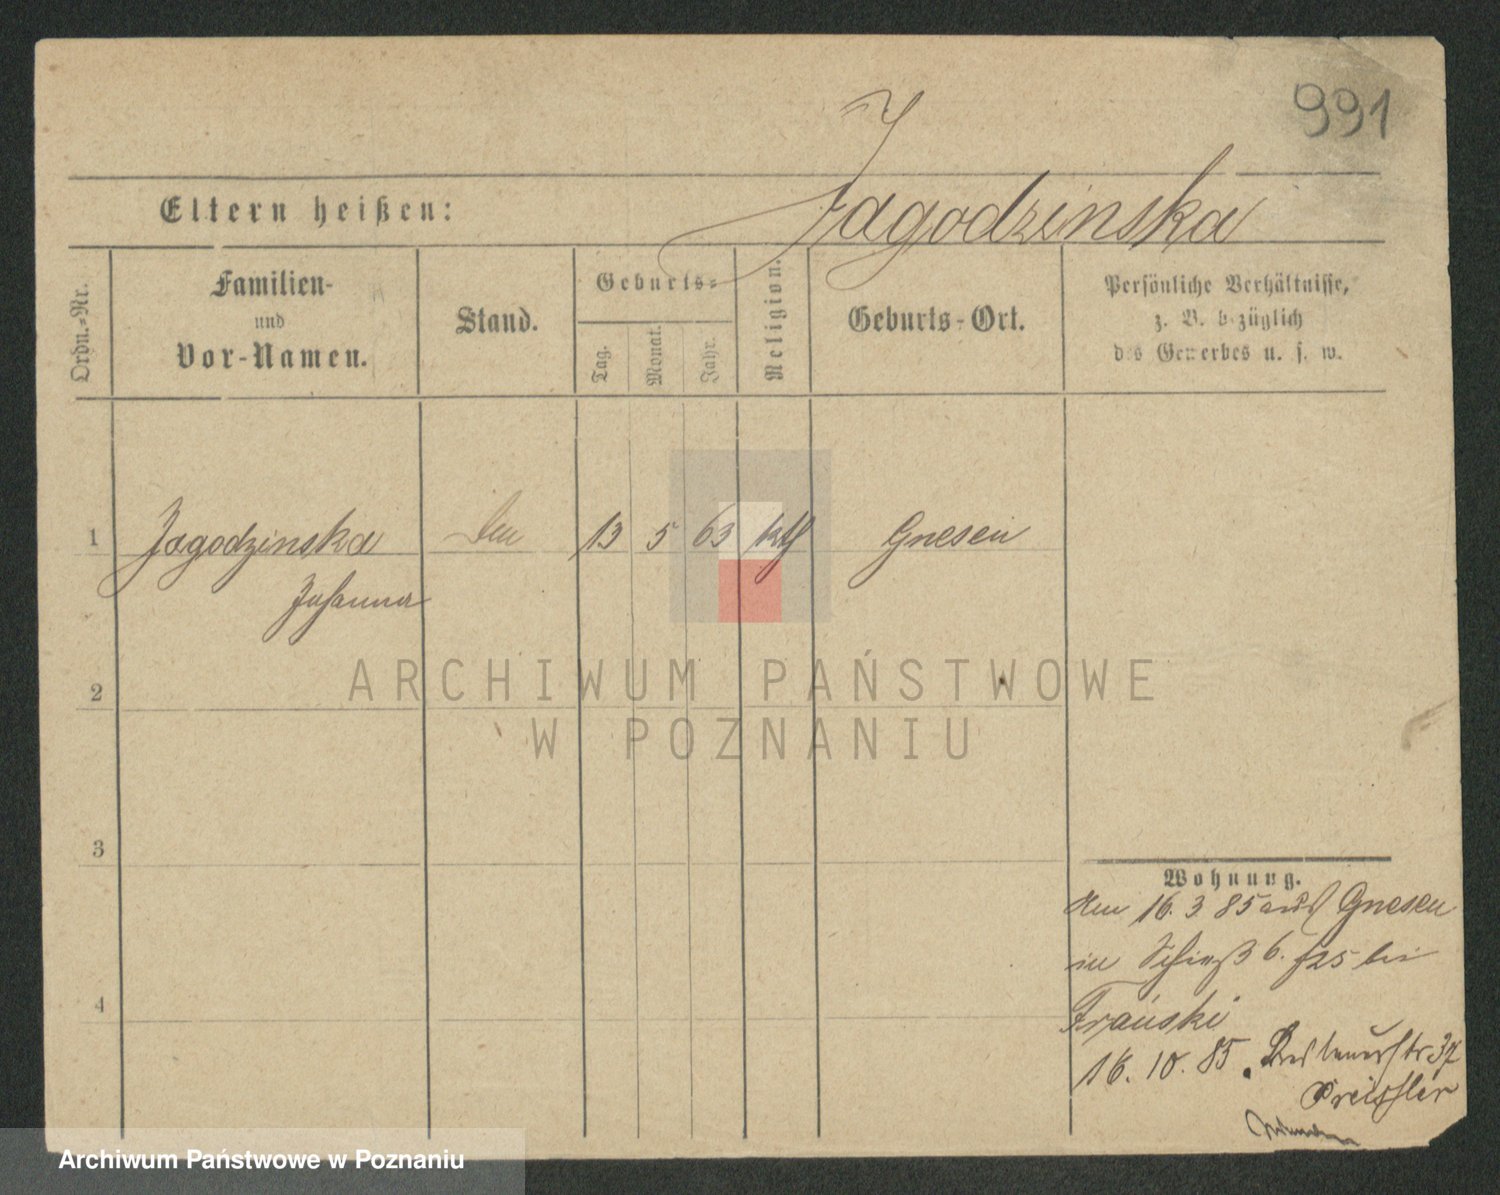 991
Jagodzinska
Eltern heißen:
Ordn.-Nr.
Familien-
und
Vor-Namen.
Stand.
Geburts-
Tag.
Monat.
Jahr.
Religion.
Geburts-Ort.
Persönliche Verhältnisse,
z. B. bezüglich
des Gewerbes u. s. w.
1 Jagodzinska 13 5 63 kth Gnesen
Johanna
2
3
4
Wohnung.
16. 3 85 aus Gnesen
in Schieß 6. bei
Frański
16. 10. 85.
Preissler
ARCHIWUM PAŃSTWOWE
W POZNANIU
Archiwum Państwowe w Poznaniu